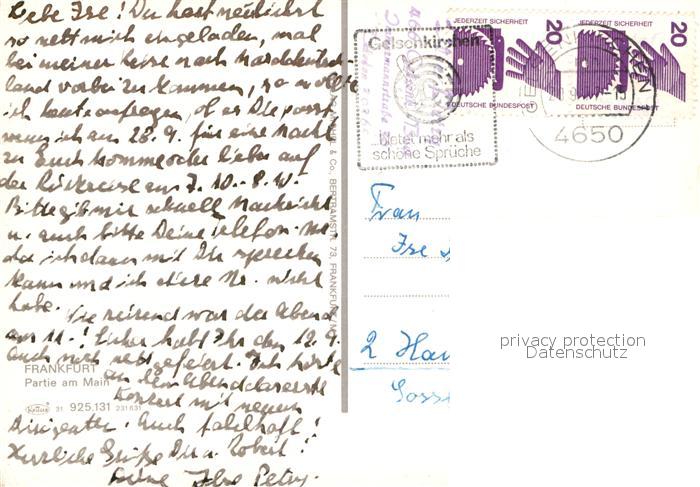 Liebe Ise! Du hast neulich
so nett mich eingeladen, mal
bei meiner Reise nach Norddeutsch-
land vorbei zu kommen, so wollte
ich heute anfragen, ob es Dir passt
wenn ich am 28.9. für eine Nacht
zu Euch komme oder lieber auf
der Rückreise am 7.10.-8.10.
Bitte gib mir schnell Nachricht
u. auch bitte Deine Telefon-Nr.
da ich dann mit Dir sprechen
kann und ich diese Nr. nicht
habe.
Wie reizend war der Abend
am 11.! Sicher habt Ihr den 12.9.
auch noch nett gefeiert. Ich hörte
an dem Abend das erste
Konzert mit neuem
Dirigenten. Auch fabelhaft!
Herzliche Grüße Dir u. Robert!
Deine Ilse
FRANKFURT
Partie am Main
Krüger 31 925.131 231631
& Co., BERTRAMSTR. 73, FRANKFURT/M.
Gelsenkirchen
...bietet mehr als
schöne Sprüche
JEDERZEIT SICHERHEIT
20
DEUTSCHE BUNDESPOST
JEDERZEIT SICHERHEIT
20
DEUTSCHE BUNDESPOST
4650
Frau
2 Ham
privacy protection
Datenschutz